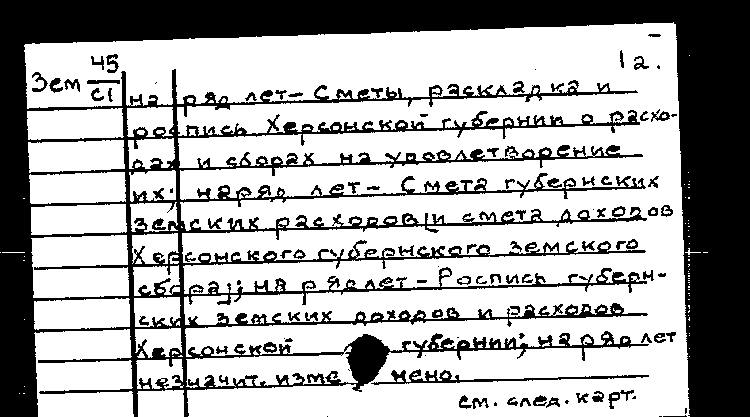 Зем 45/СІ
1а.
на ряд лет – Сметы, раскладка и
роспись Херсонской губернии о расхо-
дах и сборах на удовлетворение
их; на ряд лет – Смета губернских
земских расходов [и смета доходов
Херсонского губернского земского
сбора]; на ряд лет – Роспись губерн-
ских земских доходов и расходов
Херсонской губернии; на ряд лет
незначит. изменено.
см. след. карт.